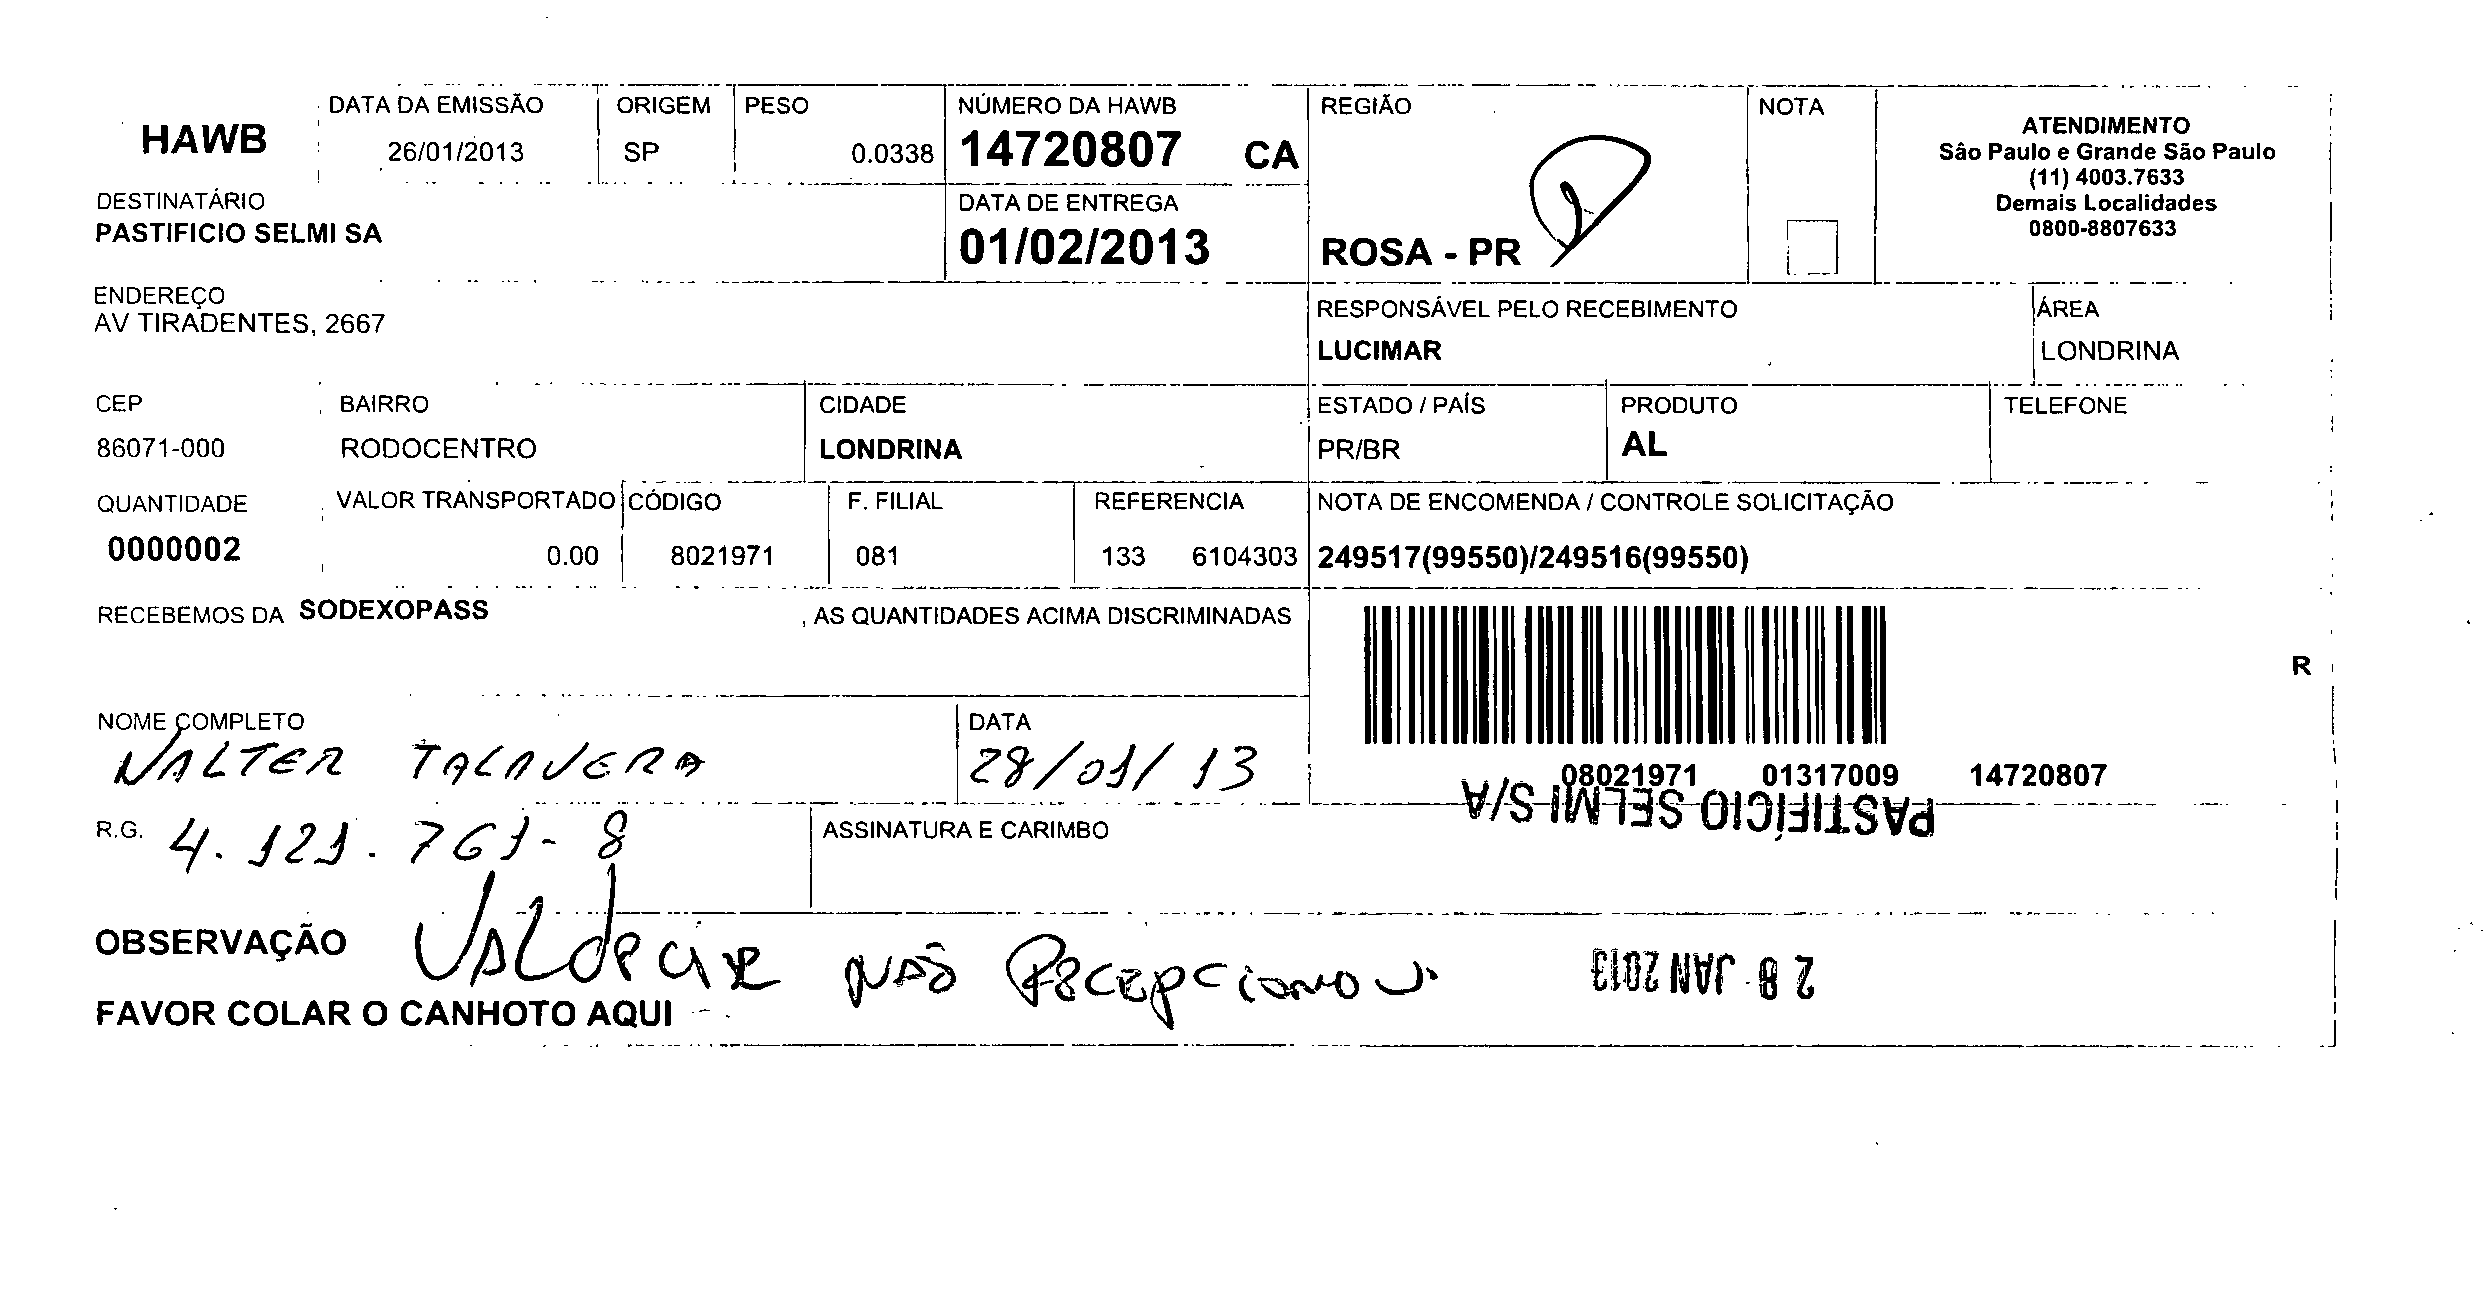 HAWB
DATA DA EMISSÃO
26/01/2013
ORIGEM
SP
PESO
0.0338
NÚMERO DA HAWB
14720807 CA
REGIÃO
ROSA - PR
NOTA
ATENDIMENTO
São Paulo e Grande São Paulo
(11) 4003.7633
Demais Localidades
0800-8807633
DESTINATÁRIO
PASTIFICIO SELMI SA
DATA DE ENTREGA
01/02/2013
ENDEREÇO
AV TIRADENTES, 2667
RESPONSÁVEL PELO RECEBIMENTO
LUCIMAR
ÁREA
LONDRINA
CEP
86071-000
BAIRRO
RODOCENTRO
CIDADE
LONDRINA
ESTADO / PAÍS
PR/BR
PRODUTO
AL
TELEFONE
QUANTIDADE
0000002
VALOR TRANSPORTADO
0.00
CÓDIGO
8021971
F. FILIAL
081
REFERENCIA
133 6104303
NOTA DE ENCOMENDA / CONTROLE SOLICITAÇÃO
249517(99550)/249516(99550)
RECEBEMOS DA SODEXOPASS , AS QUANTIDADES ACIMA DISCRIMINADAS
R
NOME COMPLETO
WALTER TALAVERA
DATA
28/01/13
08021971 01317009 14720807
PASTIFÍCIO SELMI S/A
R.G. 4.121.761-8
ASSINATURA E CARIMBO
OBSERVAÇÃO
VALdecir NÃO Recepcionou
28 JAN 2013
FAVOR COLAR O CANHOTO AQUI